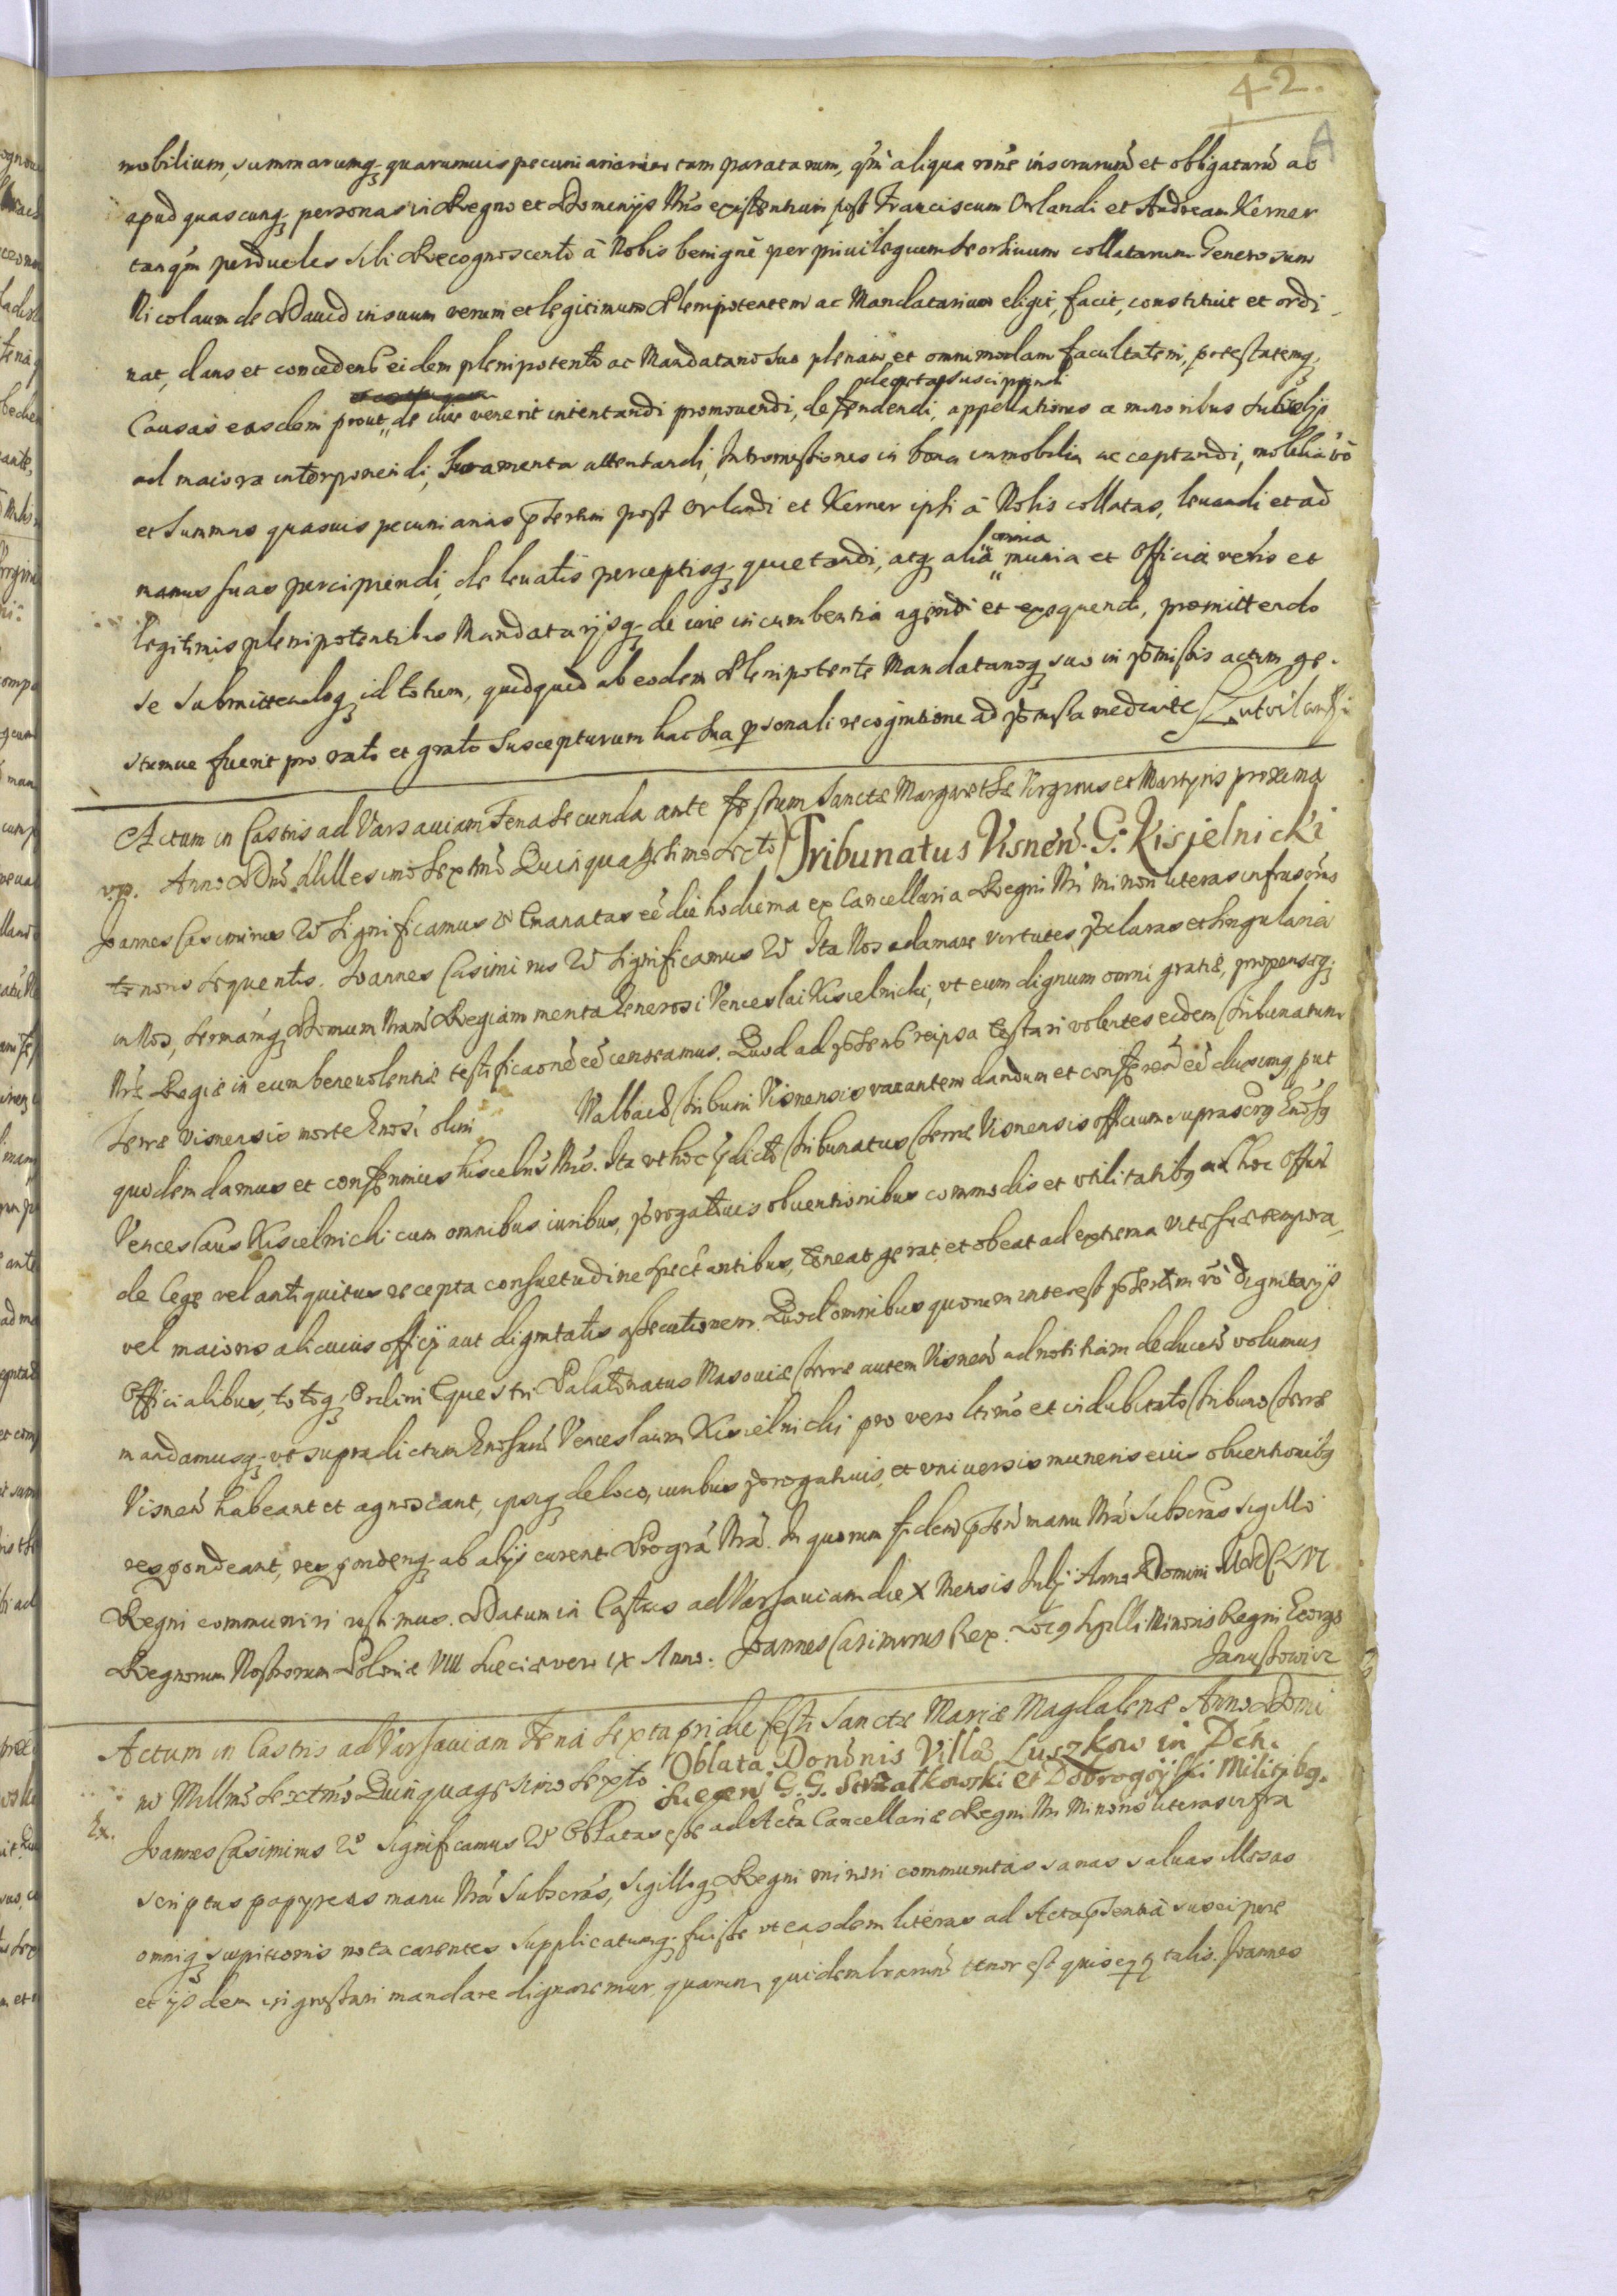 42.
A
mobilium, summarumq; quarumuis pecuniariarum tam paratarum, qm̃ aliqua rõne inscriarum̃ et obligatarũ ac
apud quascunq; personas in Regno et Dominijs Nr̃is existentium post Franciscum Orlandi et Andream Kerner
tanqm̃ perduelles sibi Recognoscenti à Nobis benignè per priuilegium seorsiuum collatarum Generosum
Nicolaum de David in suum verum et legitimum Plenipotentem ac Mandatarium eligit, facit, constituit et ordi
nat, dans et concedens eidem plenipotenti ac Mandatario suo plenam et omnimodam facultatem, potestatemq;
decreta suscipiendi
Causas easdem prout de iure venerit intentandi promouendi, defendendi, appellationes a minoribus subselijs
ad maiora interponendi, Iuramenta attentandi, Intromissiones in bona immobilia acceptandi, mobilia vö
et summas quasuis pecuniarias p̃sertim post Orlandi et Kerner ipsi à Nobis collatas, leuandi et ad
omnia
manus suas percipiendi, de leuatis perceptisq; quietandi, atq; alia munia et Officia veris et
legitimis plenipotentibus Mandatarijsq; de iure incumbentia agendi et exequendi, promittendo
se submittendoq; id totum, quidquid ab eodem Plenipotente Mandatarioq; suo in p̃missis actum ge
stumue fuerit pro rato et grato suscepturum hac sua p̲sonali recognitione ad p̃missa mediante
Actum in Castris ad Varsauiam Feria Secunda ante festum Sanctæ Margarethæ Virginis et Martyris proxima
v.p. Anno Dñi Millesimo Sexmõ Quinquagesimo Sexto Tribunatus Visneñ. G. Kisielnicki
Joannes Casimirus Significamus Emanatas eẽ die hodierna ex Cancellaria Regni Nr̃i Minori literas infrascr̃tis
tenoris sequentis. Ioannes Casimirus Significamus Ita Nos adamare virtutes, p̃claras et singularia
in Nos, Serenamq; Domum Nram̃ Regiam merita Generosi Venceslai Kisielnicki, vt eum dignum omni gratiæ, propensæq;
Nr̃æ Regiæ in eum beneuolentiæ testificaõne eẽ censeamus. Quod ad p̃sens reipsa testari volentes eidem Tribunatum
Terræ Visnensis morte Gnosi olim Walbach Tribuni Visnensis vacantem dandum et conferen̄ eẽ duximq; put
quidem damus et conferimus hisce lris̃ Nr̃is. Ita vt hoc p̃dicti Tribunatus Terræ Visnensis officium suprascr̃q Gnosq
Venceslaus Kisielnicki cum omnibus iuribus, p̃rogatiuis obuentionibus commodis et vtilitatibq ad hoc offiũ
de lege vel antiquitus recepta consuetudine spectantibus, teneat gerat, et obeat ad extrema vitæ suæ tempora,
vel maioris alicuius officij aut dignitatis assecutionem. Quod omnibus quorum interest p̃sertim vö dignitarijs
Officialibus, totiq; Ordini Equestri Palatinatus Masouiæ Terræ autem Visneñ ad notitiam deduceñ volumus
mandamusq; vt supradictum Gnosum̃ Venceslaum Kisielnicki pro vero ltimõ et indubitato Tribuno Terræ
Visneñ habeant et agnoscant, ipsiq; de loco, iuribus p̃rogatiuis, et vniuersis muneris eius obuentionibq
respondeant, respondeniq; ab alijs curent Pro grã Nrã. In quorum fidem p̃sen̄ manu Nrã Subscras̃ sigillo
Regni communiri iussimus. Datum in Castris ad Varsauiam die X Mensis Iulij Anno Domini MDCLVI
Regnorum Nostrorum Poloniæ VIII Sueciæ vero IX Anno. Joannes Casimirus Rex. Locq Sigilli Minoris Regni
Actum in Castris ad Varsauiam Feria Sexta pridie festi Sanctæ Mariæ Magdalenæ Anno Domi
no Millmõ Sextmõ Quinquagesimo Sexto Oblata Donõnis Villæ Luszkow in Dch.
Ex. G. G. Strzałkowski et Dobrogoyski Militibq.
Joannes Casimirus Significamus Oblatas esse ad Acta Cancellariæ Regni Nr̃i Minoris literas infra
scriptas papyreas manu Nrã Subscras̃, Sigilloq; Regni minori communitas sanas saluas illesas
omniq; suspitionis nota carentes Supplicatumq; fuisse vt easdem literas ad Acta p̃sentia suscipere
et ijsdem ingrossari mandare dignaremur, quarum quidem lrarum̃ tenor est quiseqq talis. Joannes